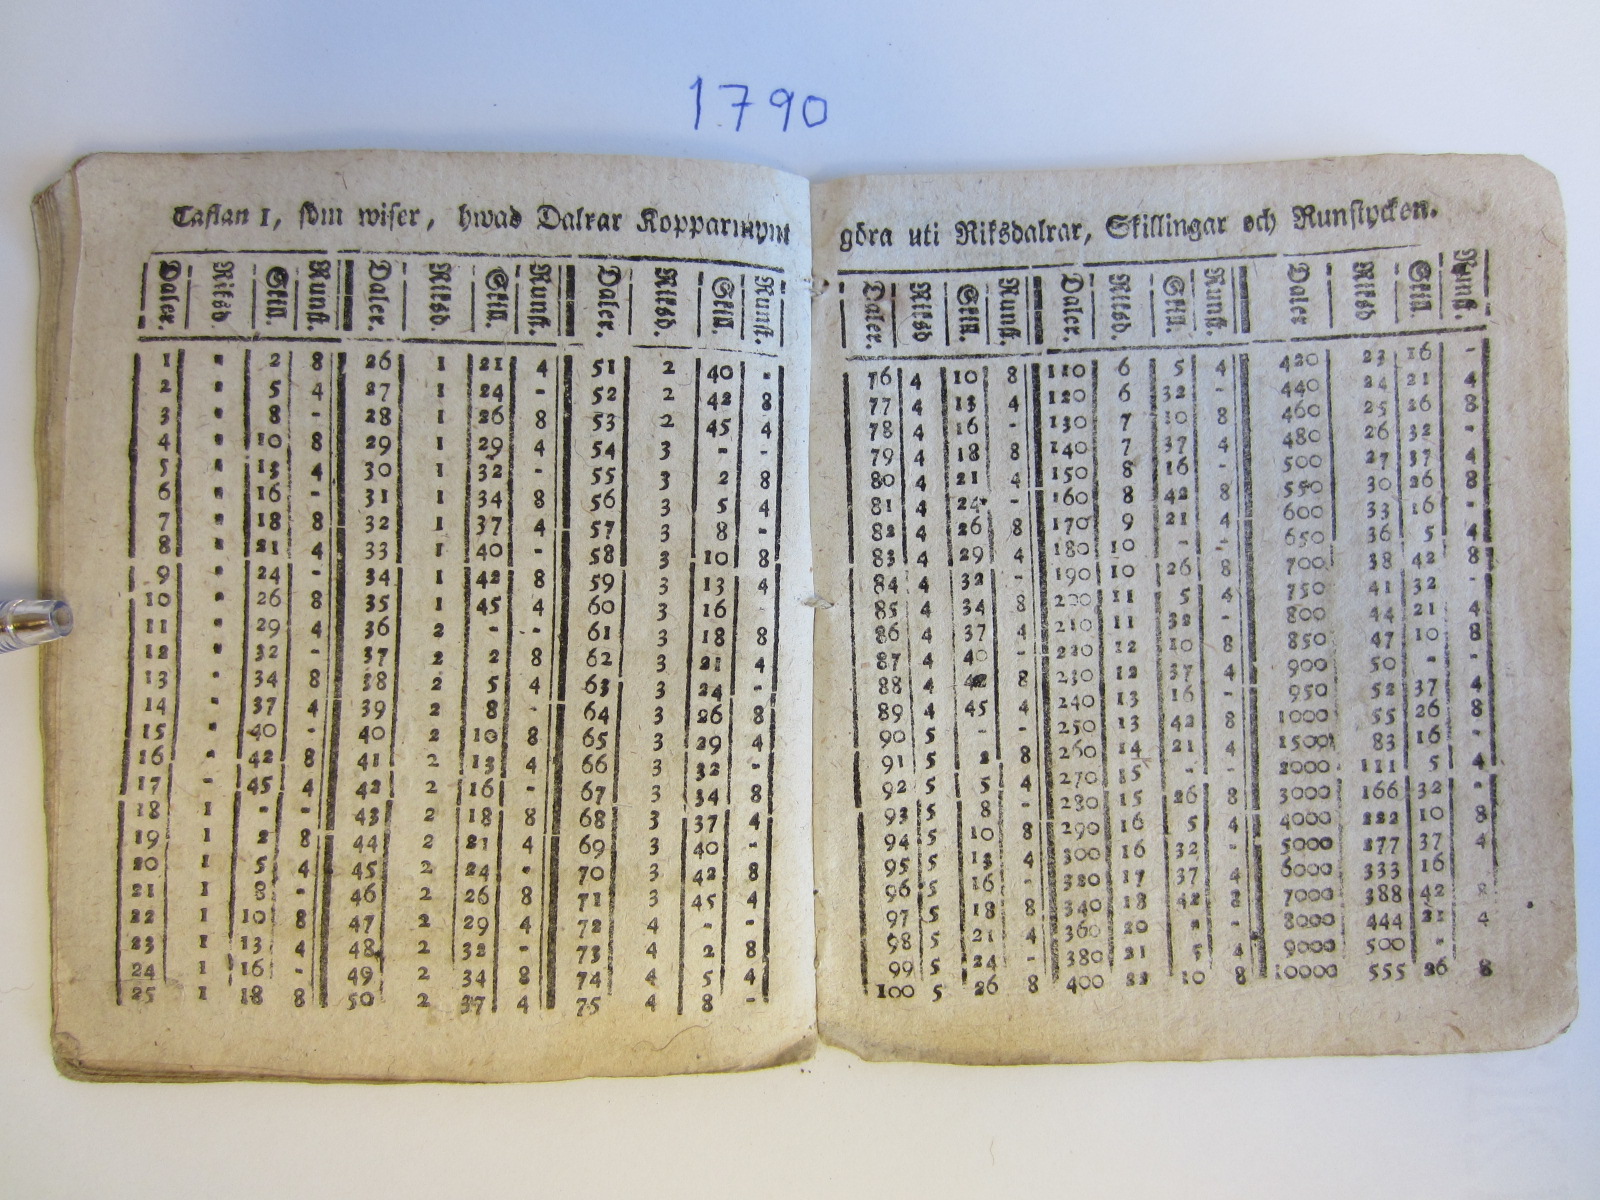 1790
Taflan 1, som wiser, hwad Dalrar Kopparmynt
Daler. Riksd. Skill. Runst. Daler. Riksd. Skill. Runst. Daler. Riksd. Skill. Runst.
1 " 2 8 26 1 21 4 51 2 40 -
2 " 5 4 27 1 24 - 52 2 42 8
3 " 8 - 28 1 26 8 53 2 45 4
4 " 10 8 29 1 29 4 54 3 - -
5 " 13 4 30 1 32 - 55 3 2 8
6 " 16 - 31 1 34 8 56 3 5 4
7 " 18 8 32 1 37 4 57 3 8 -
8 " 21 4 33 1 40 - 58 3 10 8
9 " 24 - 34 1 42 8 59 3 13 4
10 " 26 8 35 1 45 4 60 3 16 -
11 " 29 4 36 2 - - 61 3 18 8
12 " 32 - 37 2 2 8 62 3 21 4
13 " 34 8 38 2 5 4 63 3 24 -
14 " 37 4 39 2 8 - 64 3 26 8
15 " 40 - 40 2 10 8 65 3 29 4
16 " 42 8 41 2 13 4 66 3 32 -
17 - 45 4 42 2 16 - 67 3 34 8
18 1 - - 43 2 18 8 68 3 37 4
19 1 2 8 44 2 21 4 69 3 40 -
20 1 5 4 45 2 24 - 70 3 42 8
21 1 8 - 46 2 26 8 71 3 45 4
22 1 10 8 47 2 29 4 72 4 - -
23 1 13 4 48 2 32 - 73 4 2 8
24 1 16 - 49 2 34 8 74 4 5 4
25 1 18 8 50 2 37 4 75 4 8 -
göra uti Riksdalrar, Skillingar och Runstycken.
Daler. Riksd Skill. Runst. Daler. Riksd. Skill. Runst. Daler Riksd Skill. Runst.
76 4 10 8 110 6 5 4 420 23 16 -
77 4 13 4 120 6 32 - 440 24 21 4
78 4 16 - 130 7 10 8 460 25 26 8
79 4 18 8 140 7 37 4 480 26 32 -
80 4 21 4 150 8 16 - 500 27 37 4
81 4 24 - 160 8 42 8 550 30 26 8
82 4 26 8 170 9 21 4 600 33 16 -
83 4 29 4 180 10 - - 650 36 5 4
84 4 32 - 190 10 26 8 700 38 42 8
85 4 34 8 200 11 5 4 750 41 32 -
86 4 37 4 210 11 32 - 800 44 21 4
87 4 40 - 220 12 10 8 850 47 10 8
88 4 42 8 230 12 37 4 900 50 - -
89 4 45 4 240 13 16 - 950 52 37 4
90 5 - - 250 13 42 8 1000 55 26 8
91 5 2 8 260 14 21 4 1500 83 16 -
92 5 5 4 270 15 - - 2000 111 5 4
93 5 8 - 280 15 26 8 3000 166 32 -
94 5 10 8 290 16 5 4 4000 222 10 8
95 5 13 4 300 16 32 - 5000 277 37 4
96 5 16 - 320 17 37 4 6000 333 16
97 5 18 8 340 18 42 8 7000 388 42 8
98 5 21 4 360 20 - - 8000 444 21 4
99 5 24 - 380 21 5 4 9000 500 -
100 5 26 8 400 22 10 8 10000 555 26 8